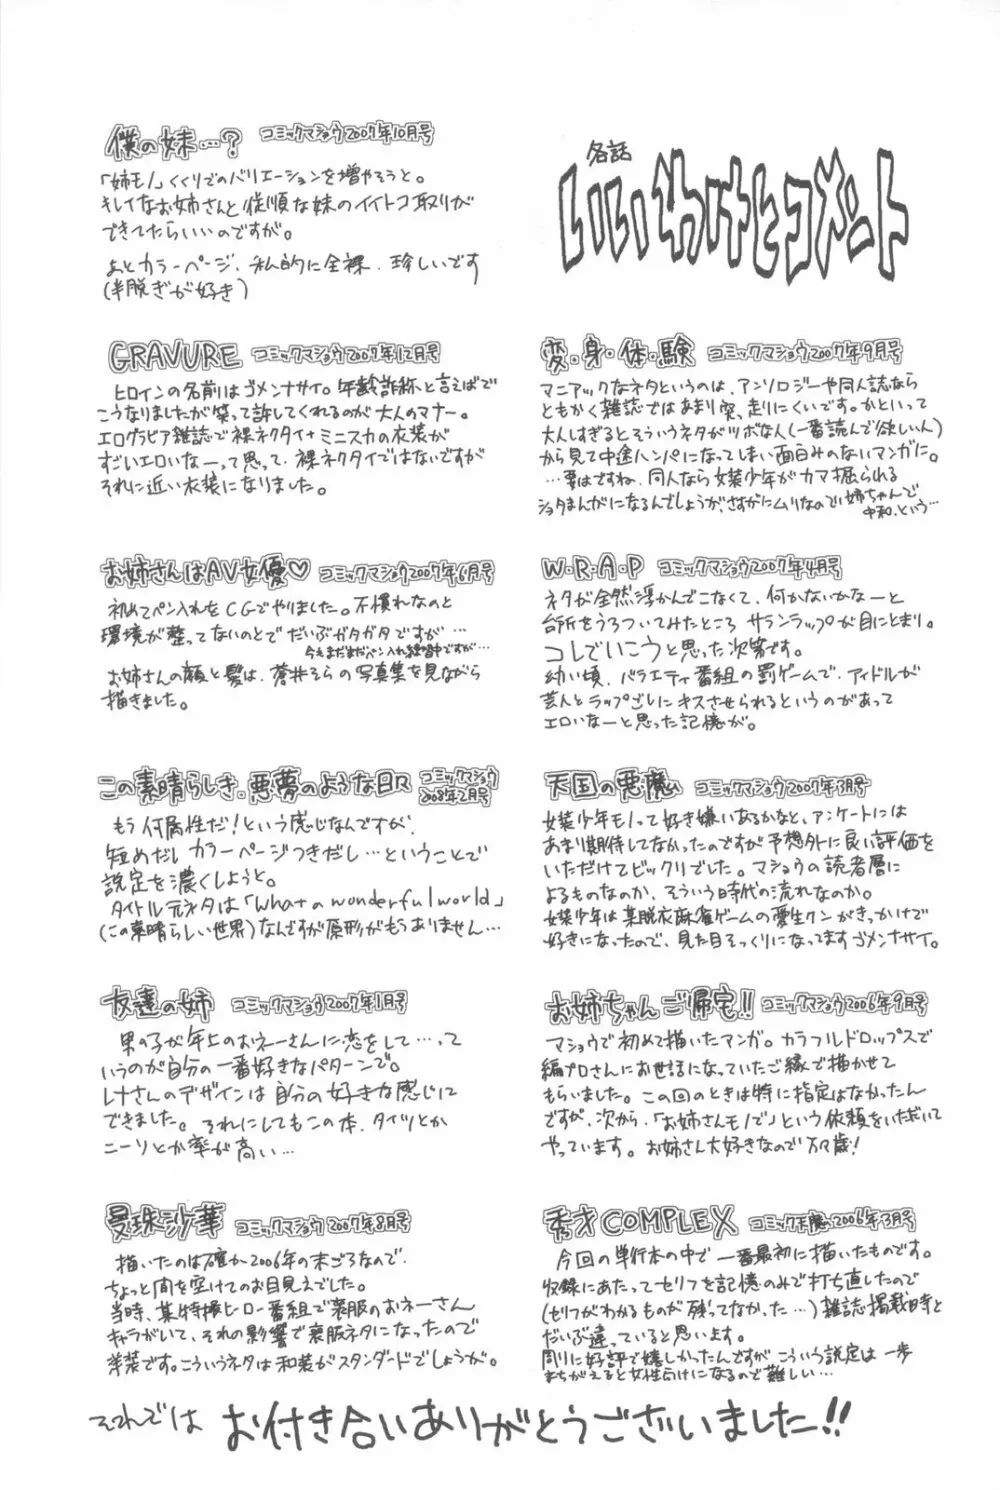 各話
いいわけとコメント
変・身・体・験 コミックマショウ2007年9月号
マニアックなネタというのは、アンソロジーや同人誌なら
ともかく雑誌ではあまり突っ走りにくいです。かといって
大人しすぎるとそういうネタがツボな人(一番読んで欲しい人)
から見て中途ハンパになってしまい面白みのないマンガに。
…要はですね、同人なら女装少年がカマ掘られる
ショタまんがになるんでしょうが、さすがにムリなので姉ちゃんで
中和、という…
W・R・A・P コミックマショウ2007年4月号
ネタが全然浮かんでこなくて、何かないかなーと
台所をうろついてみたところ サランラップが目にとまり。
コレでいこうと思った次第です。
幼い頃、バラエティ番組の罰ゲームで、アイドルが
芸人とラップごしにキスさせられるというのがあって
エロいなーと思った記憶が。
天国の悪魔 コミックマショウ2007年3月号
女装少年モノって好き嫌いあるかなと、アンケートには
あまり期待してなかったのですが予想外に良い評価を
いただけてビックリでした。マショウの読者層に
よるものなのか、そういう時代の流れなのか。
女装少年は某脱衣麻雀ゲームの愛生クンがきっかけで
好きになったので、見た目そっくりになってますゴメンナサイ。
お姉ちゃんご帰宅!! コミックマショウ2006年9月号
マショウで初めて描いたマンガ。カラフルドロップスで
編プロさんにお世話になっていたご縁で描かせて
もらいました。この回のときは特に指定はなかったん
ですが、次から、「お姉さんモノで」という依頼をいただいて
やっています。お姉さん大好きなので万歳!
秀才COMPLEX 2006年3月号
今回の単行本の中で一番最初に描いたものです。
収録にあたってセリフを記憶のみで打ち直したので
(セリフがわかるものが残ってなかった…)雑誌掲載時と
だいぶ違っていると思います。
周りに好評で嬉しかったんですが こういう設定は一歩
まちがえると女性向けになるので難しい…
僕の妹…? コミックマショウ2007年10月号
「姉モノ」くくりでのバリエーションを増やそうと。
キレイなお姉さんと従順な妹のイイトコ取りが
できてたらいいのですが。
あとカラーページ、私的に全裸、珍しいです
(半脱ぎが好き)
GRAVURE コミックマショウ2007年12月号
ヒロインの名前はゴメンナサイ。年齢詐称と言えばで
こうなりましたが笑って許してくれるのが大人のマナー。
エログラビア雑誌で裸ネクタイ+ミニスカの衣装が
すごいエロいなーって思って、裸ネクタイではないですが
それに近い衣装になりました。
お姉さんはAV女優♡ コミックマショウ2007年6月号
初めてペン入れをCGでやりました。不慣れなのと
環境が整ってないのとでだいぶガタガタですが…
今もまだまだペン入れ練習中ですが…
お姉さんの顔と髪は、蒼井そらの写真集を見ながら
描きました。
この素晴らしき、悪夢のような日々 コミックマショウ
2008年2月号
もう何属性だ!という感じなんですが、
短めだしカラーページつきだし…ということで
設定を濃くしようと。
タイトル元ネタは「What a wonderful world」
(この素晴らしい世界)なんですが原形がもうありません…
友達の姉 コミックマショウ2007年1月号
男の子が年上のおネーさんに恋をして……って
いうのが自分の一番好きなパターンで。
レナさんのデザインは自分の好きな感じに
できました。それにしてもこの本、タイツとか
ニーソとか率が高い…
曼珠沙華 コミックマショウ2007年8月号
描いたのは確か2006年の末ごろなので、
ちょっと間を空けてのお目見えでした。
当時、某特撮ヒーロー番組で喪服のおネーさん
キャラがいて、それの影響で喪服ネタになったので
洋装です。こういうネタは和装がスタンダードでしょうが。
それではお付き合いありがとうございました!!